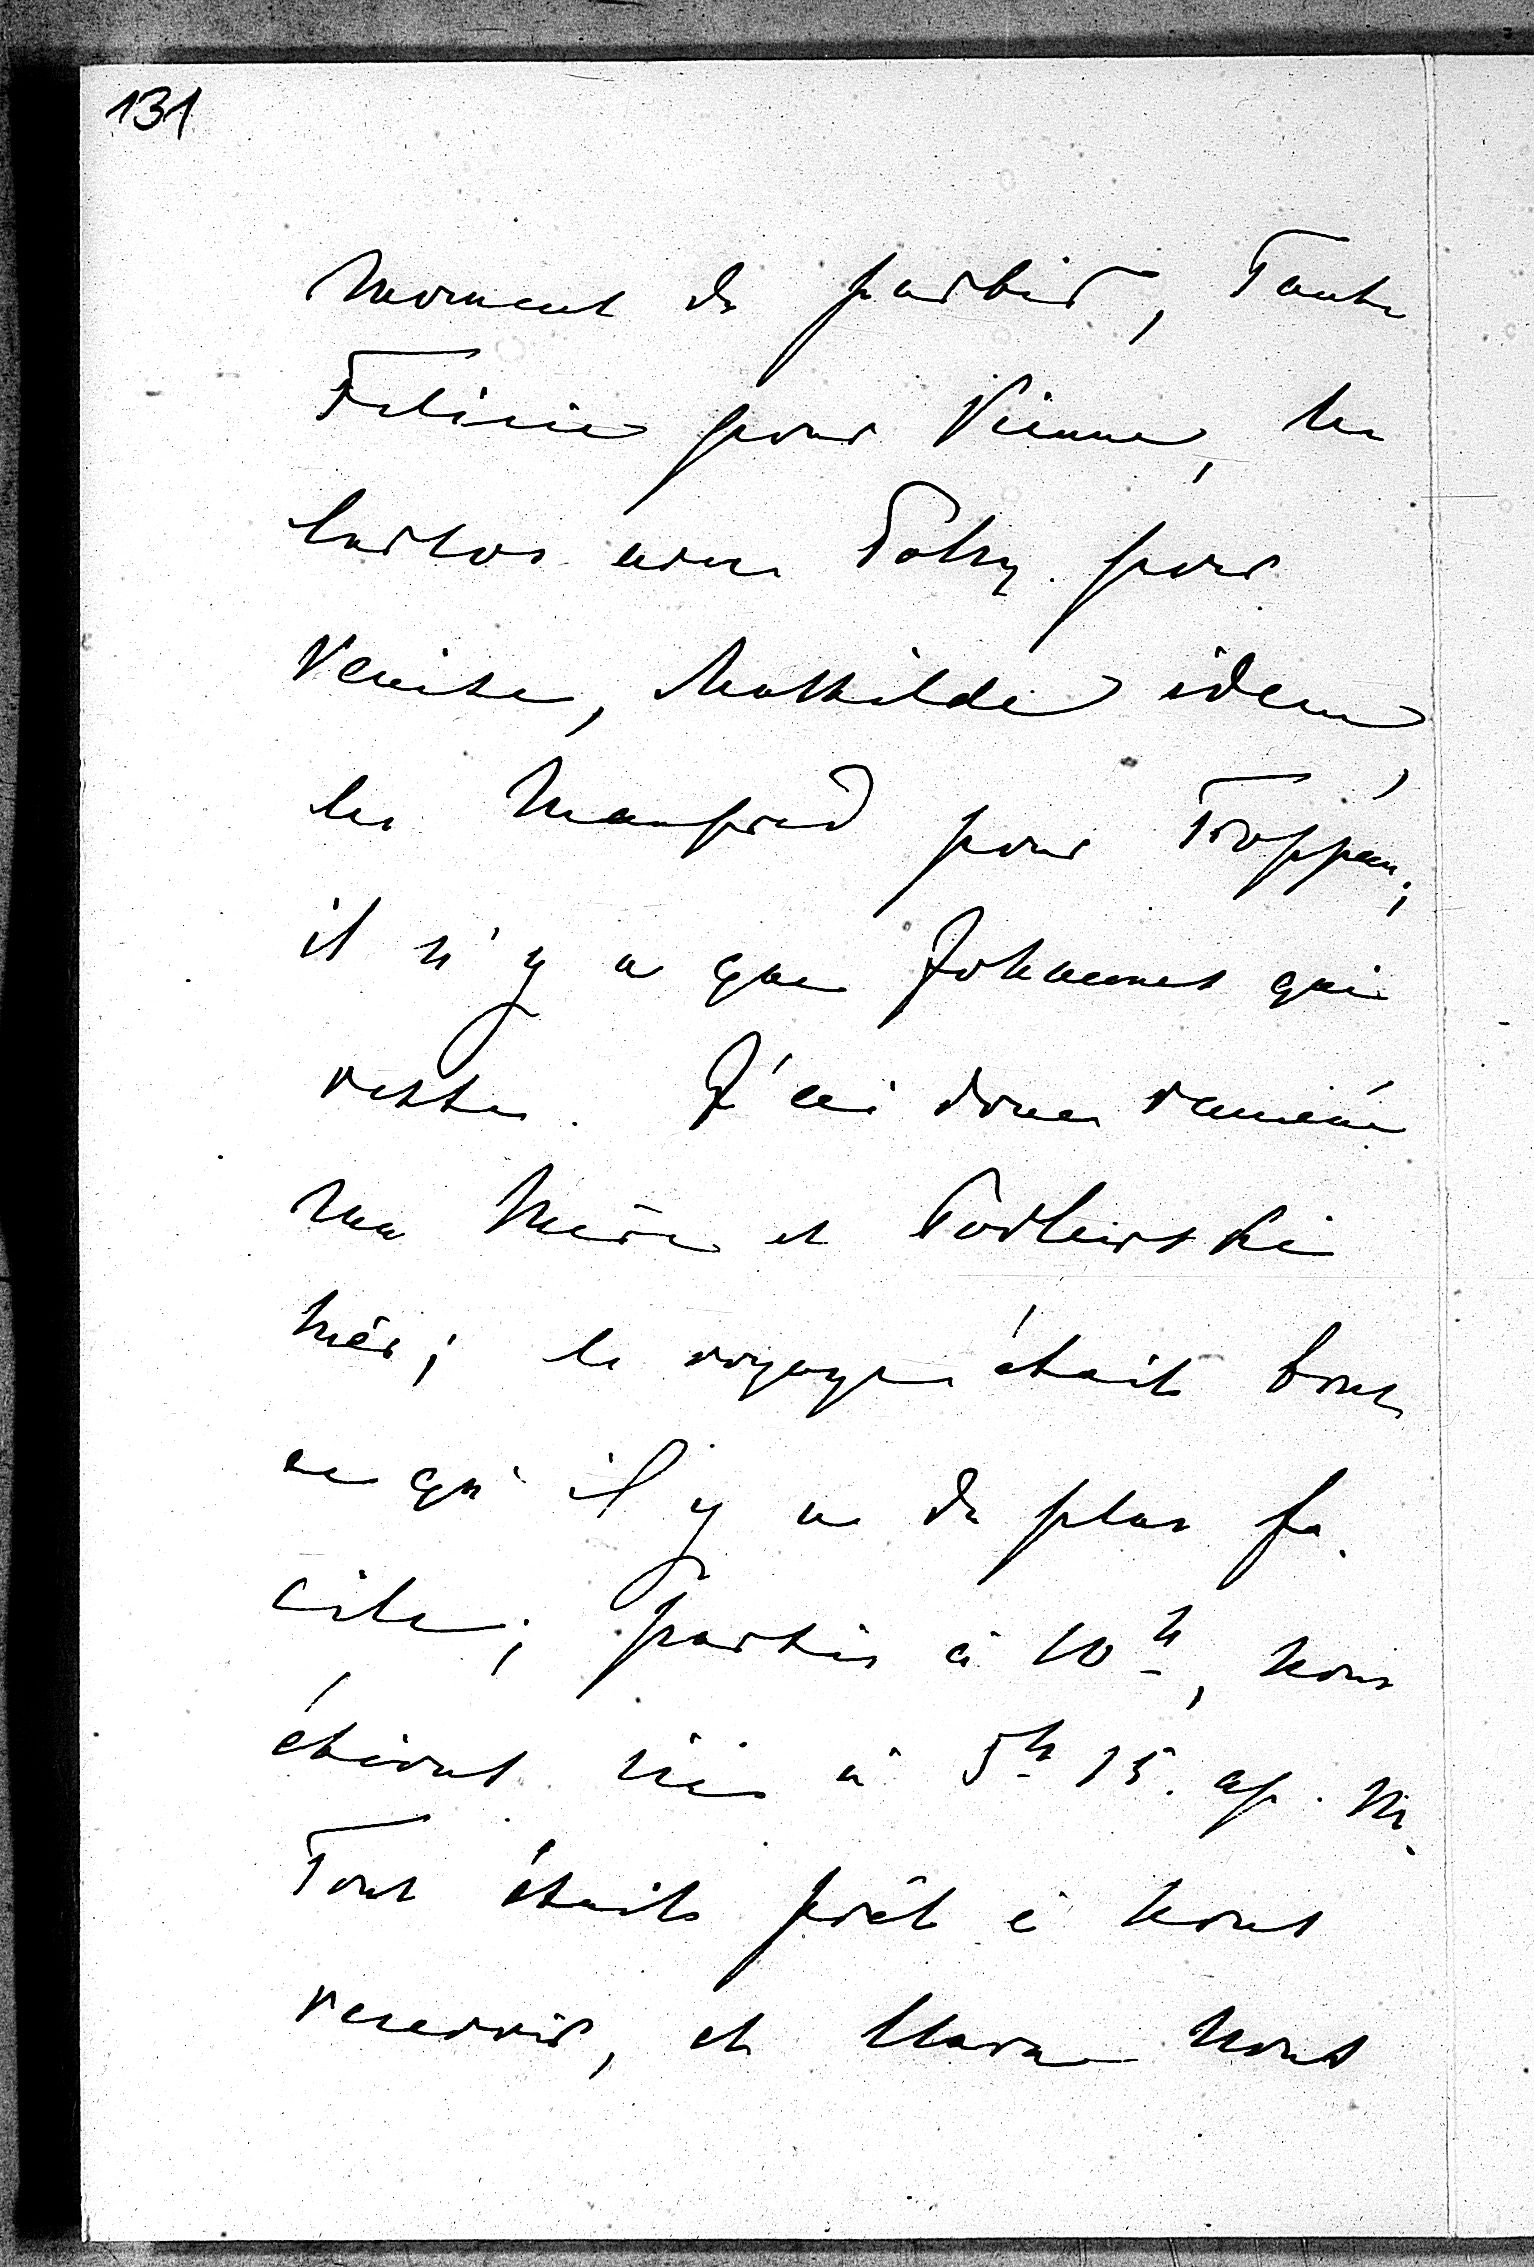 131
moment de partir, Tante
Felicie pour Vienne, les
Carlos avec Polxy pour
Venise, Mathilde idem,
les Manfred pour Troppau;
il n'y a que Johannes qui
reste. J'ai donc ramené
ma Mère et Podlewski
hier; le voyage était tout
ce qu'il y a de plus fa
cile; partis à 10h, nous
étions ici à 5h 15. ap. m.
Tout était prêt à nous
recevoir, et Clara nous